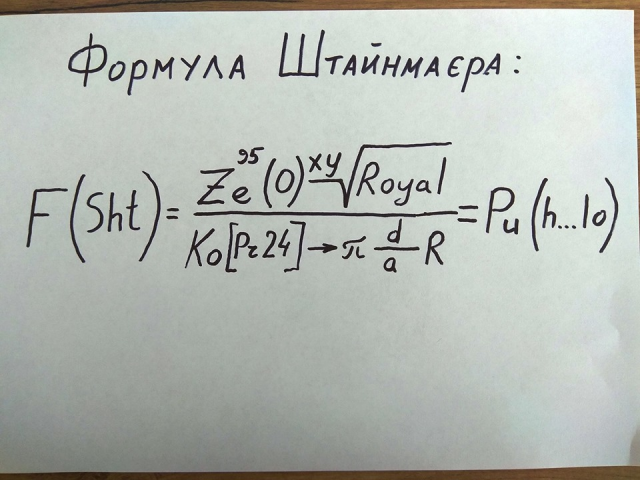 Формула Штайнмаєра:
F(Sht) = Ze⁹⁵(0)^xy √Royal / Ko[Pr24] → π d/a R = Pu(h...lo)